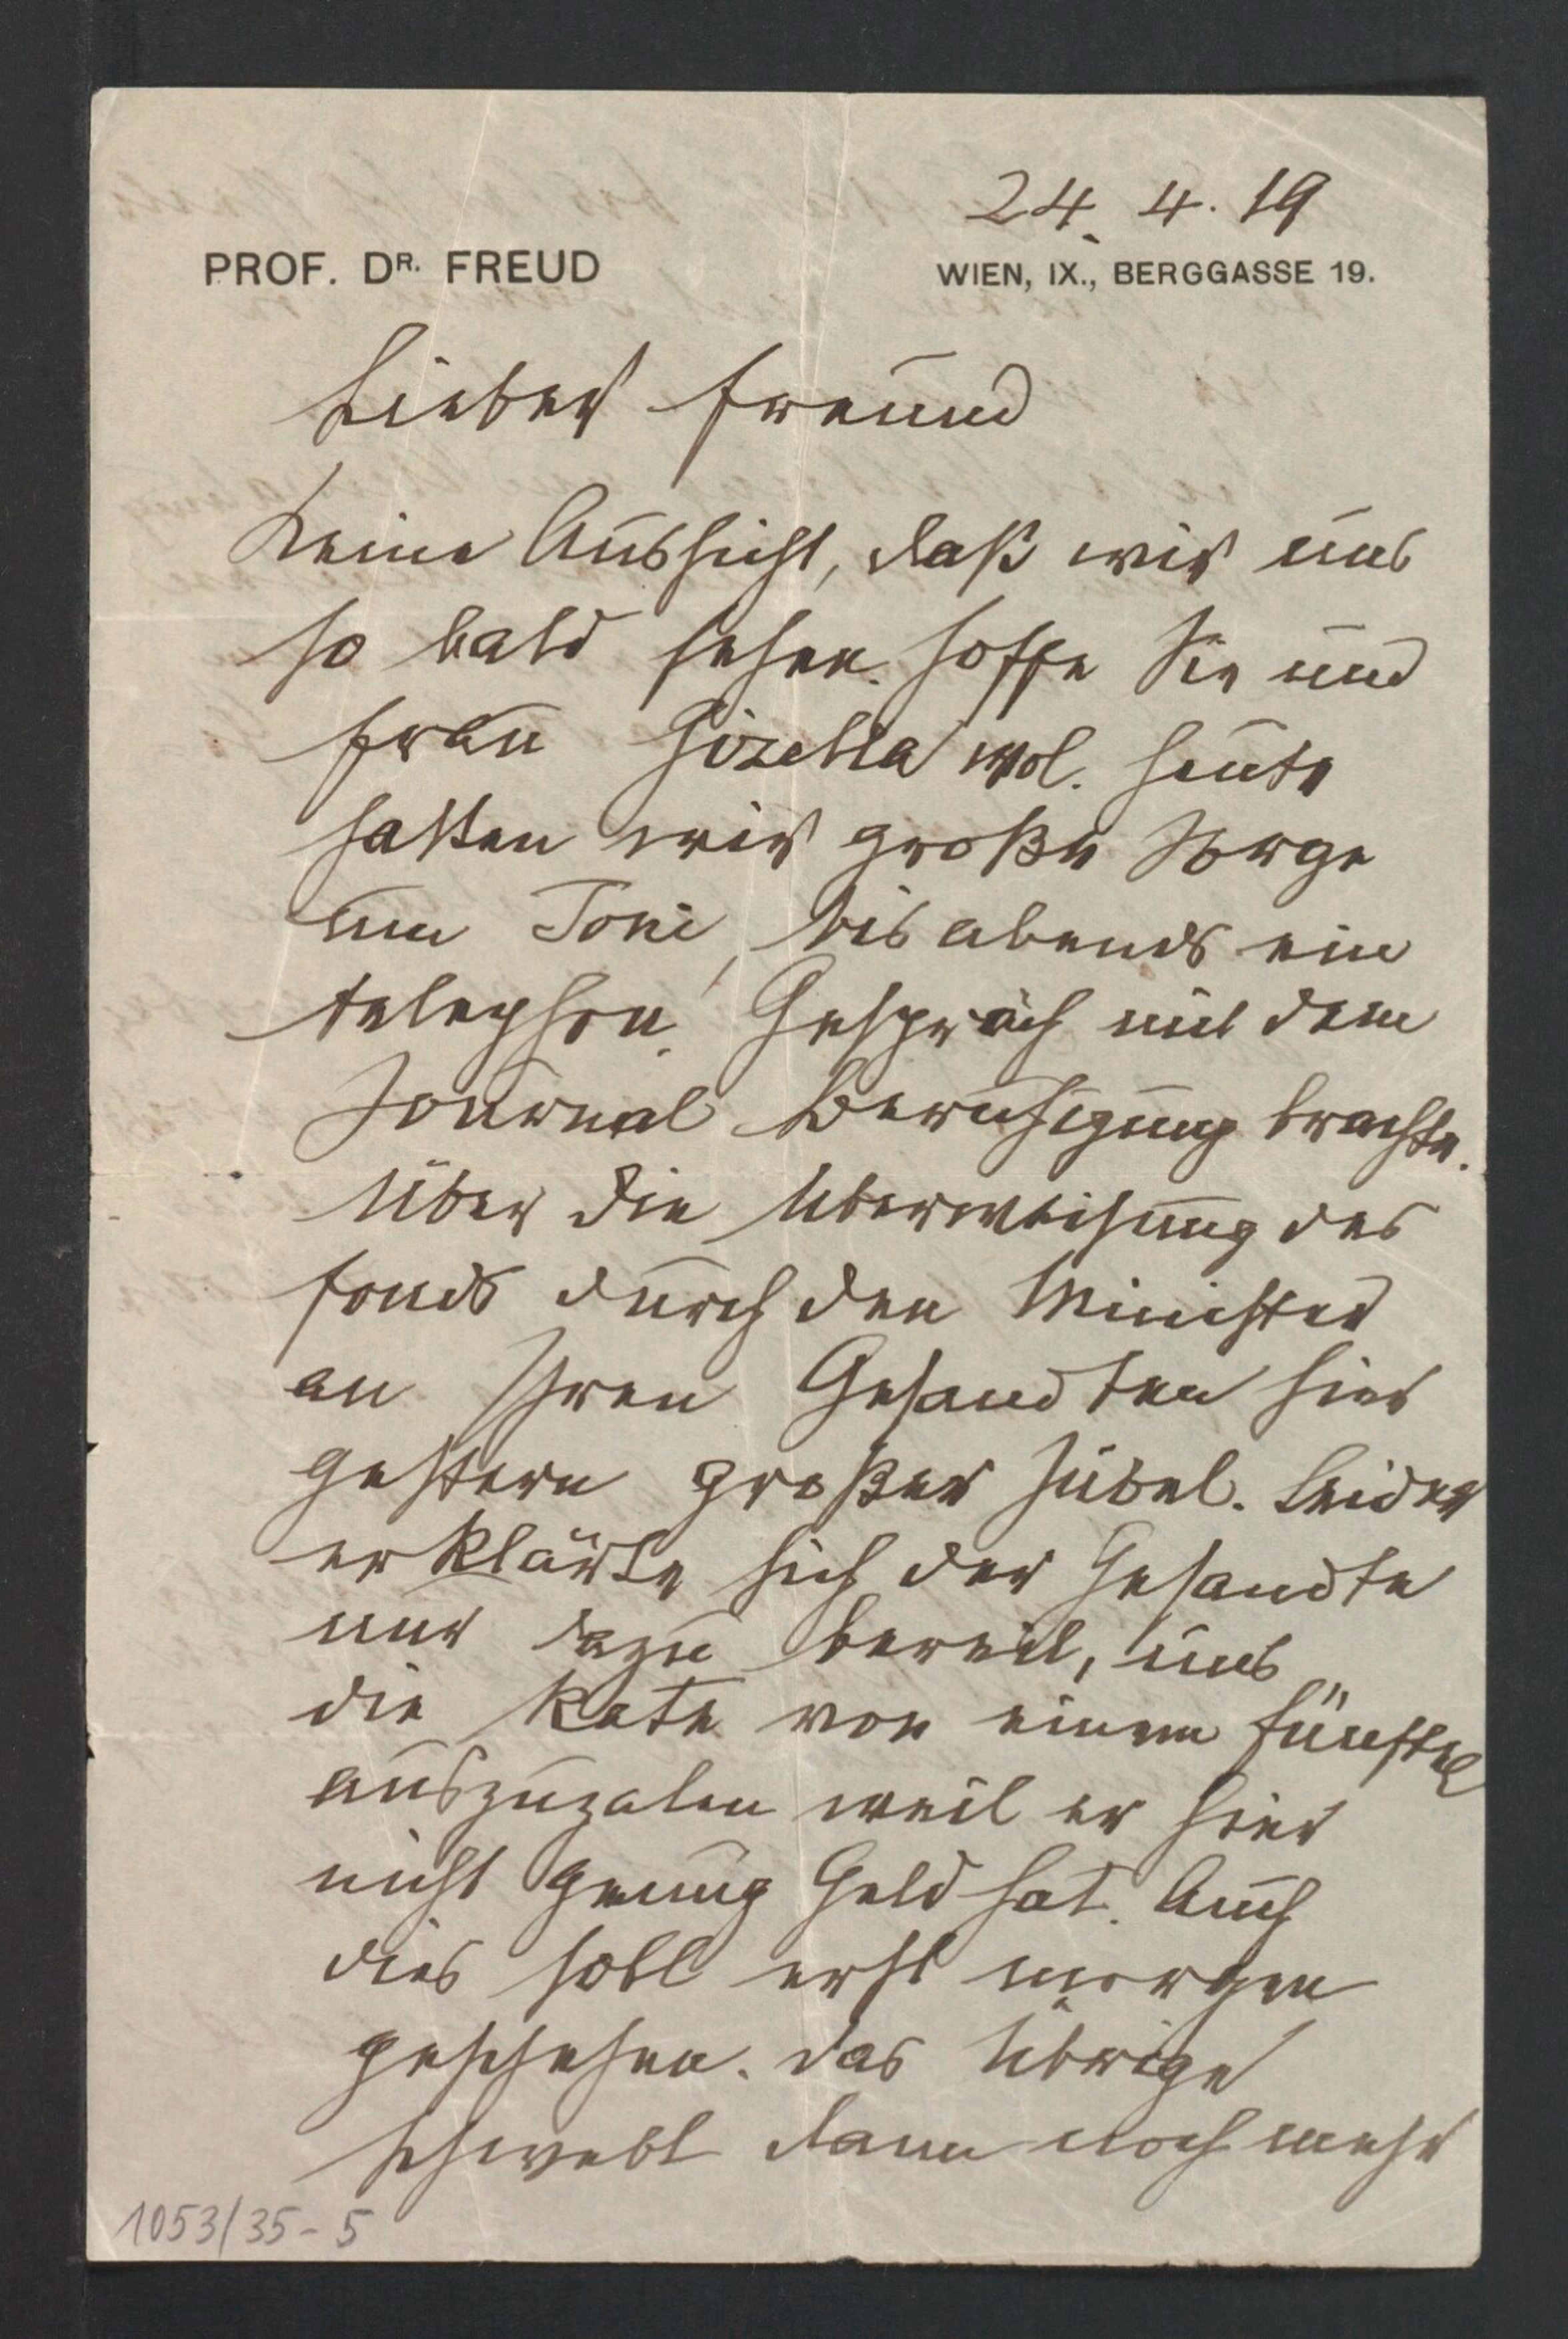 24. 4. 19
PROF. DR. FREUD
WIEN, IX., BERGGASSE 19.
Lieber Freund
Keine Aussicht, daß wir uns
so bald sehen. Hoffe Sie und
Frau Gizella wol. Heute
hatten wir große Sorge
um Toni, bis abends ein
telephon. Gespräch mit dem
Journal Beruhigung brachte.
Über die Überweisung des
Fonds durch den Minister
an Ihren Gesandten hier
gestern großer Jubel. Leider
erklärte sich der Gesandte
nur dazu bereit, uns
die Rate von einem Fünftel
auszuzalen weil er hier
nicht genug Geld hat. Auch
dies soll erst morgen
geschehen. Das Übrige
schwebt dann noch mehr
1053/35-5